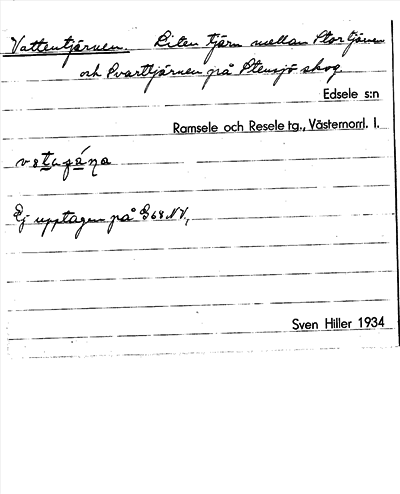 Vattentjärnen. Liten tjärn mellan Stortjärnen
och Svarttjärnen på Stensjö skog.
Edsele s:n
Ramsele och Resele tg., Västernorrl. l.
Ej upptagen på G 68 NV,
Sven Hiller 1934